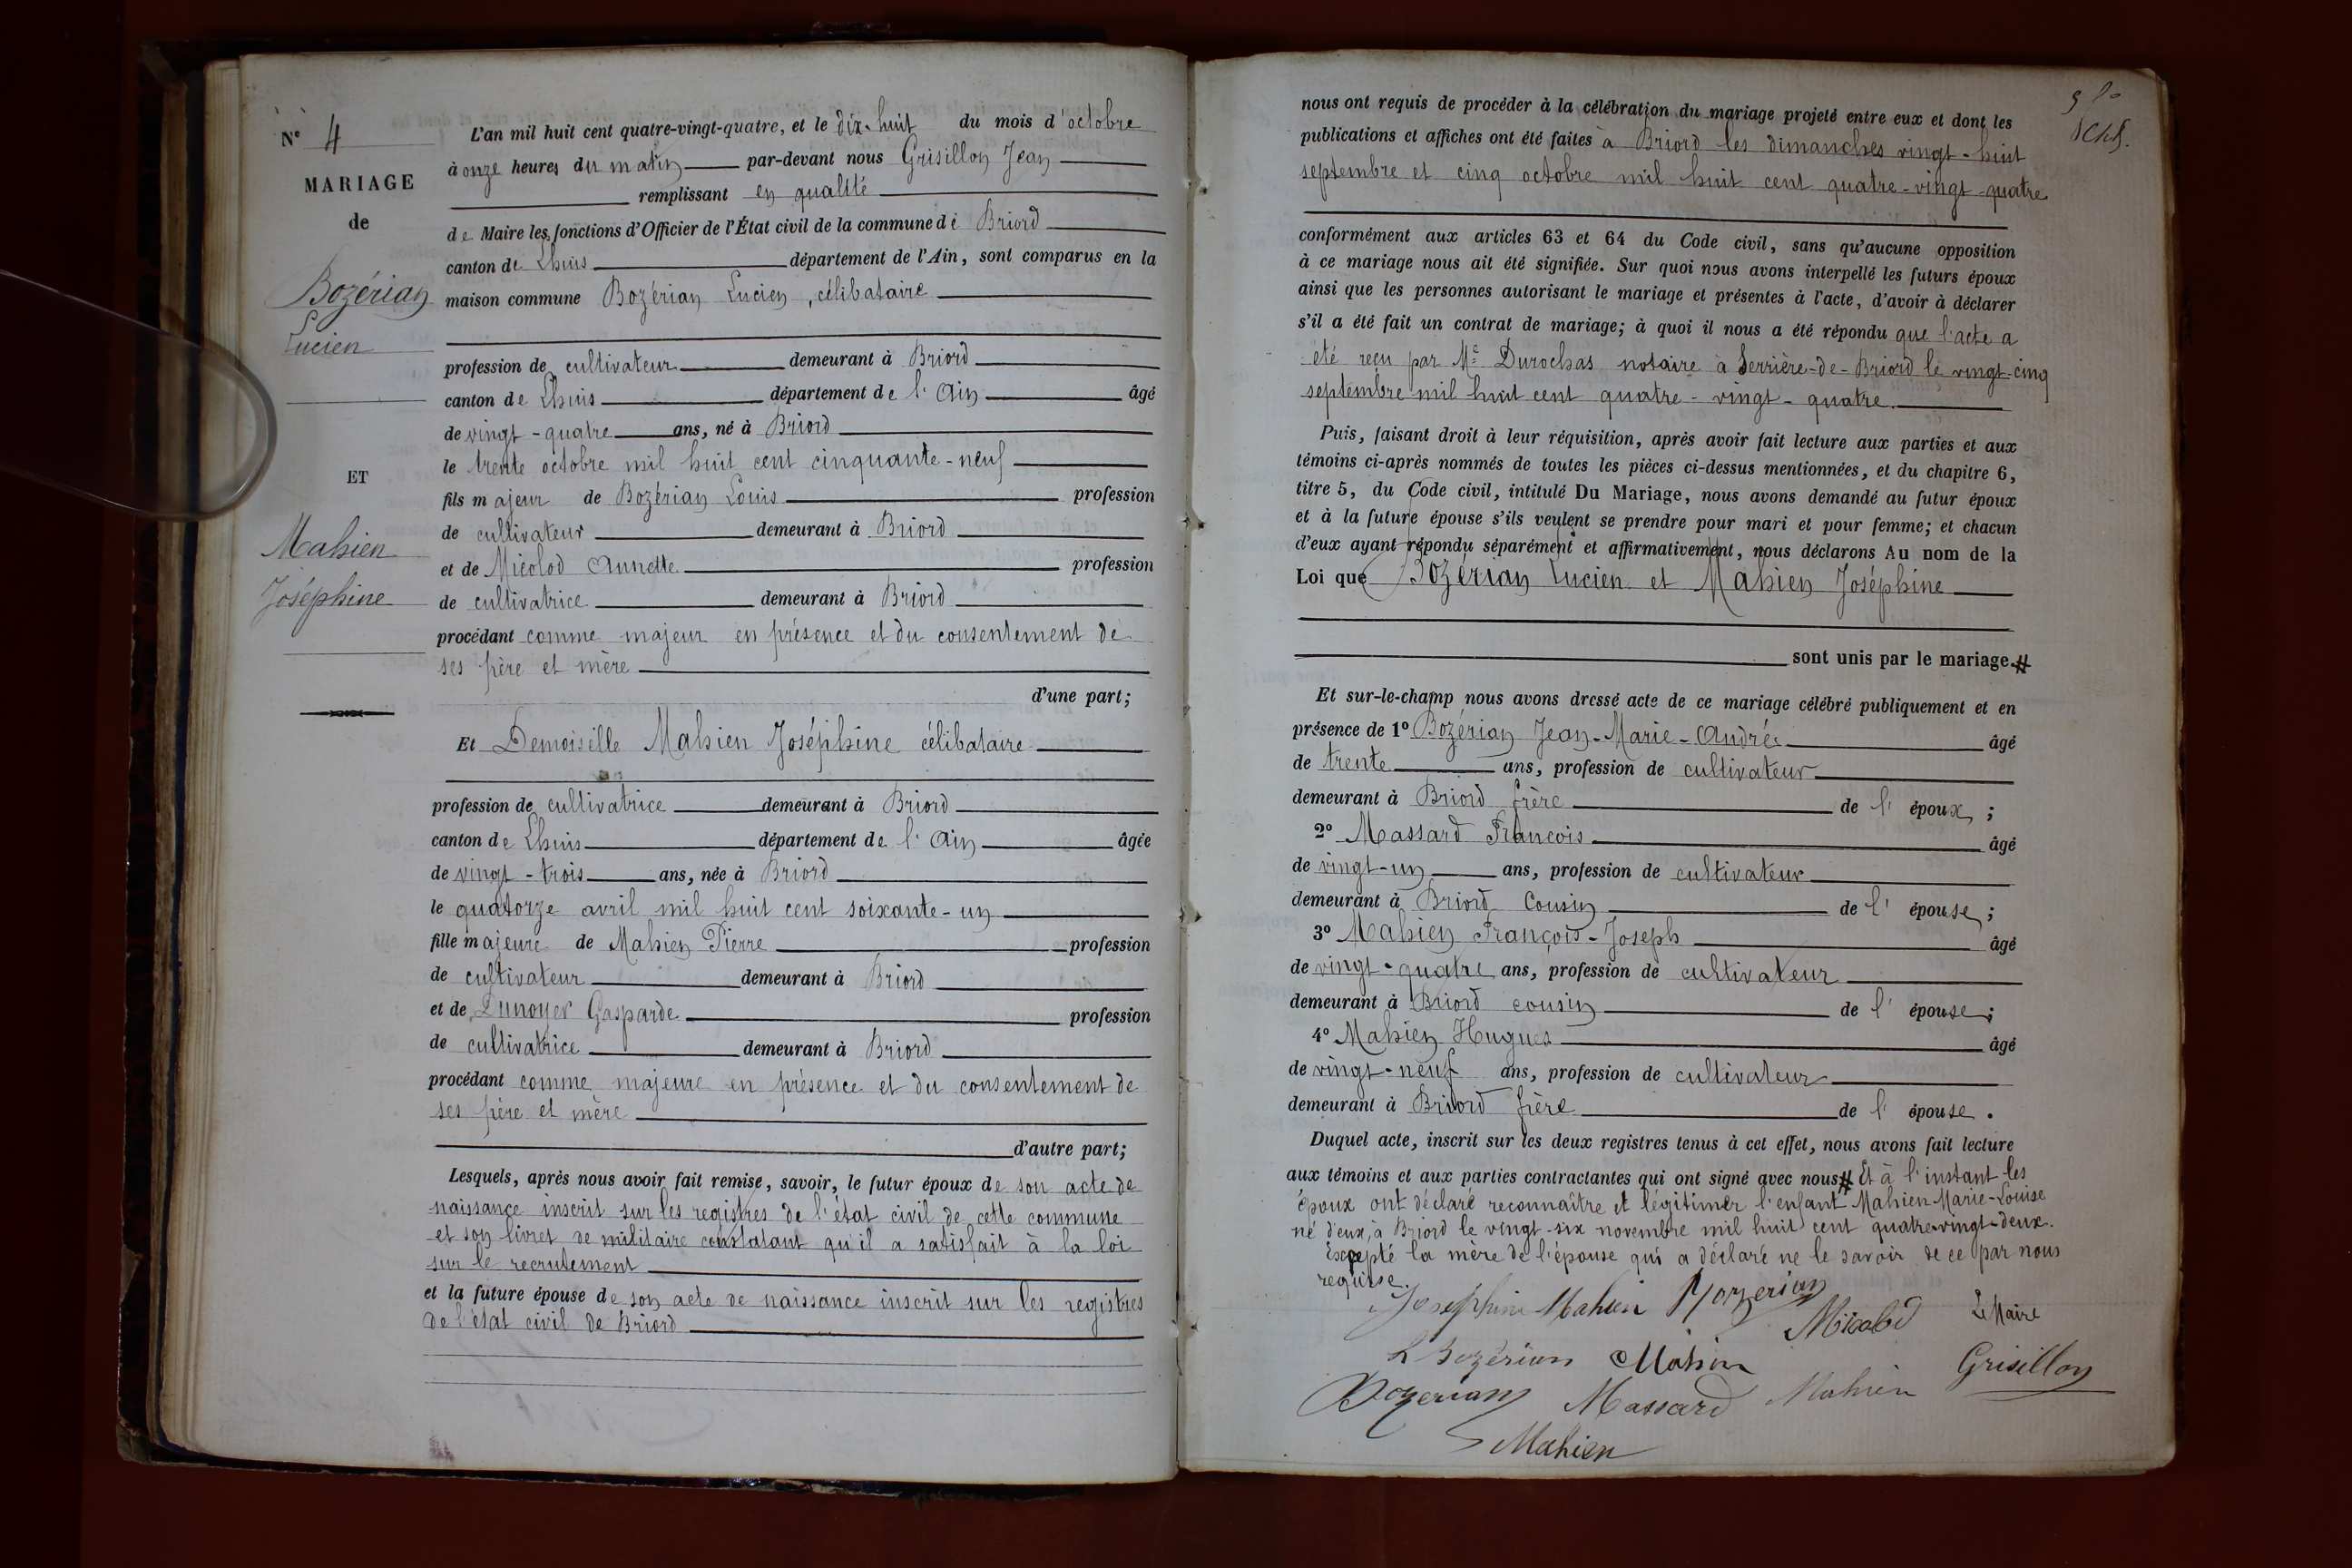 N° 4
MARIAGE
de
Bozérian
Lucien
ET
Mahien
Joséphine
L'an mil huit cent quatre-vingt-quatre, et le dix-huit du mois d'octobre
à onze heures du matin par-devant nous Grisillon Jean
remplissant en qualité
de Maire les fonctions d'Officier de l'État civil de la commune de Briord
canton de Lhuis département de l'Ain, sont comparus en la
maison commune Bozérian Lucien, célibataire
profession de cultivateur demeurant à Briord
canton de Lhuis département de l'Ain âgé
de vingt-quatre ans, né à Briord
le trente octobre mil huit cent cinquante-neuf
fils majeur de Bozérian Louis profession
de cultivateur demeurant à Briord
et de Micolod Annette profession
de cultivatrice demeurant à Briord
procédant comme majeur en présence et du consentement de
ses père et mère
d'une part;
Et Demoiselle Mahien Joséphine célibataire
profession de cultivatrice demeurant à Briord
canton de Lhuis département de l'Ain âgée
de vingt-trois ans, née à Briord
le quatorze avril mil huit cent soixante-un
fille majeure de Mahien Pierre profession
de cultivateur demeurant à Briord
et de Dunoyer Gasparde profession
de cultivatrice demeurant à Briord
procédant comme majeure en présence et du consentement de
ses père et mère
d'autre part;
Lesquels, après nous avoir fait remise, savoir, le futur époux de son acte de
naissance inscrit sur les registres de l'état civil de cette commune
et son livret de militaire constatant qu'il a satisfait à la loi
sur le recrutement
et la future épouse de son acte de naissance inscrit sur les registres
de l'état civil de Briord
nous ont requis de procéder à la célébration du mariage projeté entre eux et dont les
publications et affiches ont été faites à Briord les dimanches vingt-huit
septembre et cinq octobre mil huit cent quatre-vingt-quatre
conformément aux articles 63 et 64 du Code civil, sans qu'aucune opposition
à ce mariage nous ait été signifiée. Sur quoi nous avons interpellé les futurs époux
ainsi que les personnes autorisant le mariage et présentes à l'acte, d'avoir à déclarer
s'il a été fait un contrat de mariage; à quoi il nous a été répondu que l'acte a
été reçu par Me Durochas notaire à Serrière-de-Briord le vingt-cinq
septembre mil huit cent quatre-vingt-quatre.
Puis, faisant droit à leur réquisition, après avoir fait lecture aux parties et aux
témoins ci-après nommés de toutes les pièces ci-dessus mentionnées, et du chapitre 6,
titre 5, du Code civil, intitulé Du Mariage, nous avons demandé au futur époux
et à la future épouse s'ils veulent se prendre pour mari et pour femme; et chacun
d'eux ayant répondu séparément et affirmativement, nous déclarons Au nom de la
Loi que Bozérian Lucien et Mahien Joséphine
sont unis par le mariage.#
Et sur-le-champ nous avons dressé acte de ce mariage célébré publiquement et en
présence de 1° Bozérian Jean-Marie-André âgé
de trente ans, profession de cultivateur
demeurant à Briord frère de l'époux;
2° Massard François âgé
de vingt-un ans, profession de cultivateur
demeurant à Briord Cousin de l'épouse;
3° Mahien François-Joseph âgé
de vingt-quatre ans, profession de cultivateur
demeurant à Briord cousin de l'épouse;
4° Mahien Hugues âgé
de vingt-neuf ans, profession de cultivateur
demeurant à Briord frère de l'épouse.
Duquel acte, inscrit sur les deux registres tenus à cet effet, nous avons fait lecture
aux témoins et aux parties contractantes qui ont signé avec nous # Et à l'instant les
époux ont déclaré reconnaître et légitimer l'enfant Mahien Marie-Louise
né d'eux, à Briord le vingt-six novembre mil huit cent quatre-vingt-deux.
Excepté la mère de l'épouse qui a déclaré ne le savoir de ce par nous
requise.
Joséphine Mahien Bozerian
Micolod Le Maire
L Bozérian Mahien Grisillon
Bozerian Massard Mahien
Mahien